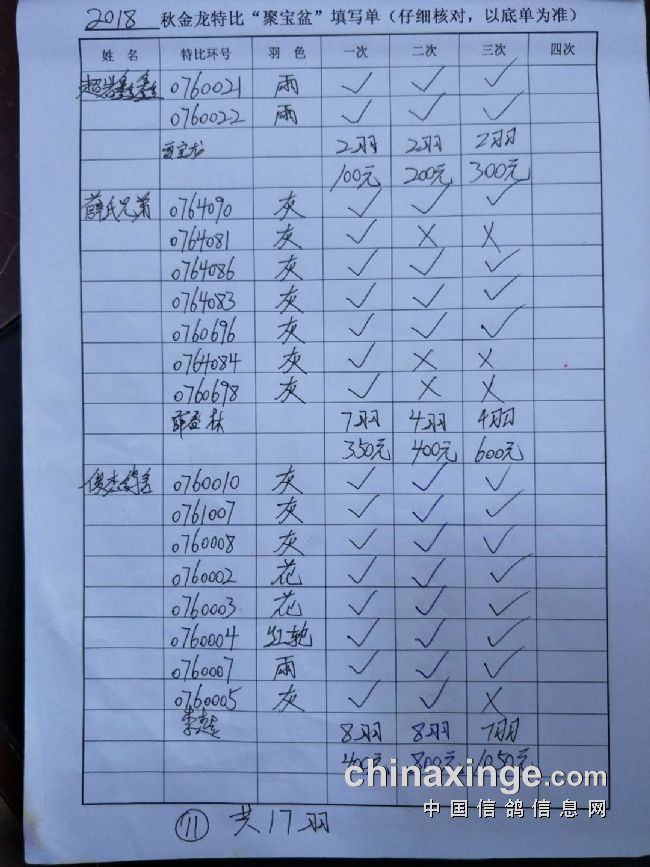 2018 秋金龙特比“聚宝盆”填写单（仔细核对，以底单为准）
姓 名 特比环号 羽 色 一次 二次 三次 四次
0760021 雨 ✓ ✓ ✓
0760022 雨 ✓ ✓ ✓
2羽 2羽 2羽
100元 200元 300元
薛氏兄弟 0764090 灰 ✓ ✓ ✓
0764081 灰 ✓ × ×
0764086 灰 ✓ ✓ ✓
0764083 灰 ✓ ✓ ✓
0760696 灰 ✓ ✓ ✓
0764084 灰 ✓ × ×
0760698 灰 ✓ × ×
7羽 4羽 4羽
350元 400元 600元
0760010 灰 ✓ ✓ ✓
0761007 灰 ✓ ✓ ✓
0760008 灰 ✓ ✓ ✓
0760002 花 ✓ ✓ ✓
0760003 花 ✓ ✓ ✓
0760004 红轮 ✓ ✓ ✓
0760007 雨 ✓ ✓ ✓
0760005 灰 ✓ ✓ ×
8羽 8羽 7羽
400元 800元 1050元
chinaxinge.com
中国信鸽信息网
⑪ 共17羽